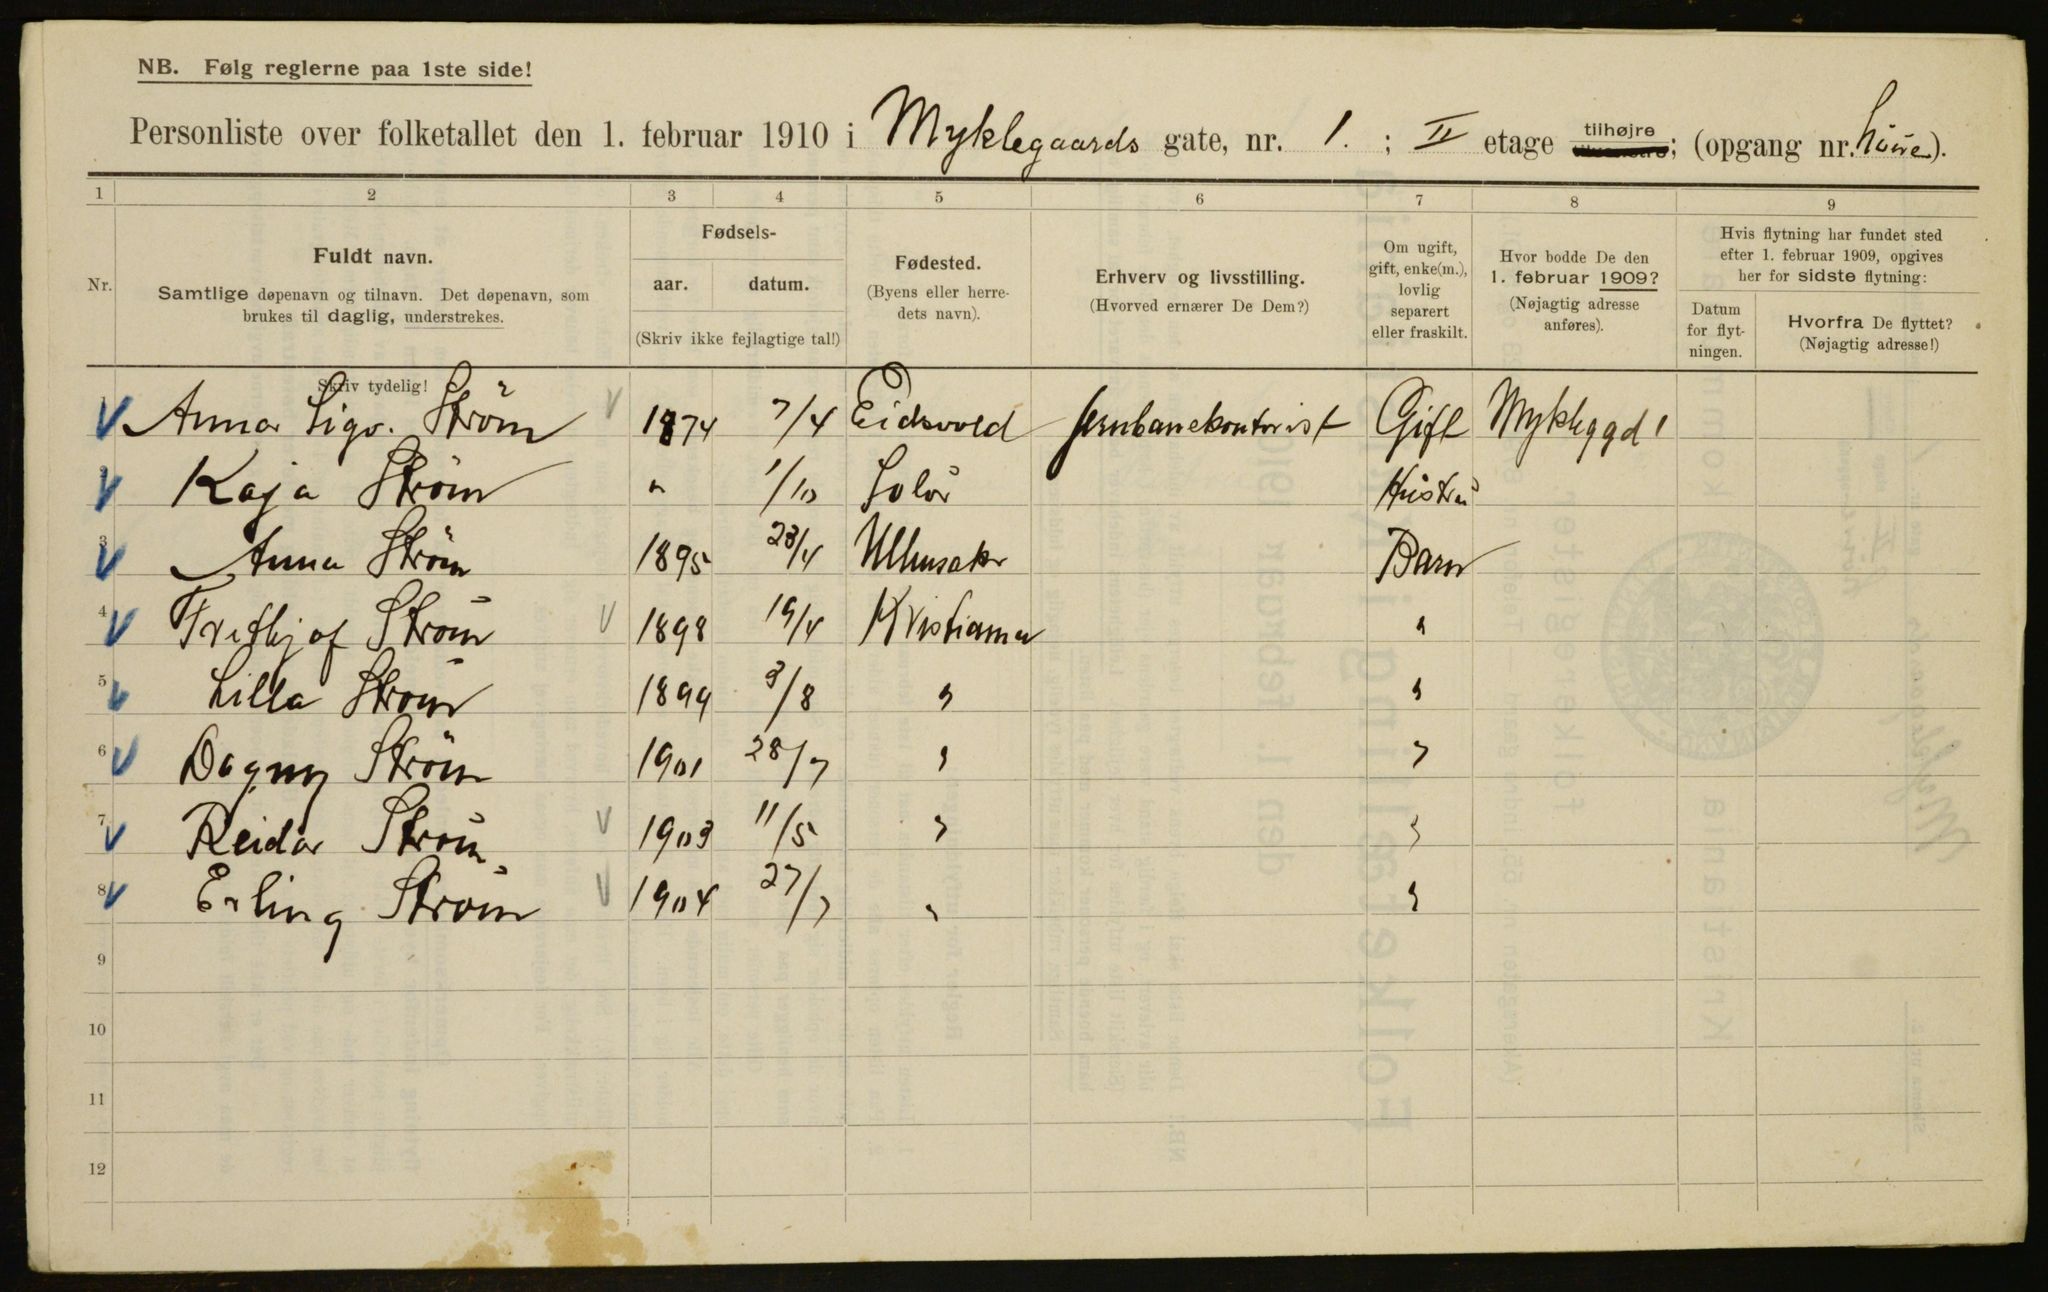 NB. Følg reglerne paa 1ste side!
Personliste over folketallet den 1. februar 1910 i Myklegaards gate, nr. 1. ; II etage tilhøjre; (opgang nr. ).
1 2 3 4 5 6 7 8 9
Nr. Fuldt navn. Samtlige døpenavn og tilnavn. Det døpenavn, som brukes til daglig, understrekes.
Fødsels- aar. datum. (Skriv ikke fejlagtige tal!)
Fødested. (Byens eller herredets navn).
Erhverv og livsstilling. (Hvorved ernærer De Dem?)
Om ugift, gift, enke(m.), lovlig separert eller fraskilt.
Hvor bodde De den 1. februar 1909? (Nøjagtig adresse anføres).
Hvis flytning har fundet sted efter 1. februar 1909, opgives her for sidste flytning:
Datum for flytningen. Hvorfra De flyttet? (Nøjagtig adresse!)
Skriv tydelig!
Sigv. Ström 1874 7/4 Eidsvold Jernbanekontorist Gift Myklegd 1
2 Kaja Ström " 1/10 Solör Hustru
3 Anna Ström 1895 23/4 Ullensaker Barn
4 Frithjof Ström 1898 19/4 Kristiania "
5 Lilla Ström 1899 3/8 " "
6 Dagny Ström 1901 28/7 " "
7 Reidar Ström 1903 11/5 " "
8 Erling Ström 1904 27/7 " "
9
10
11
12